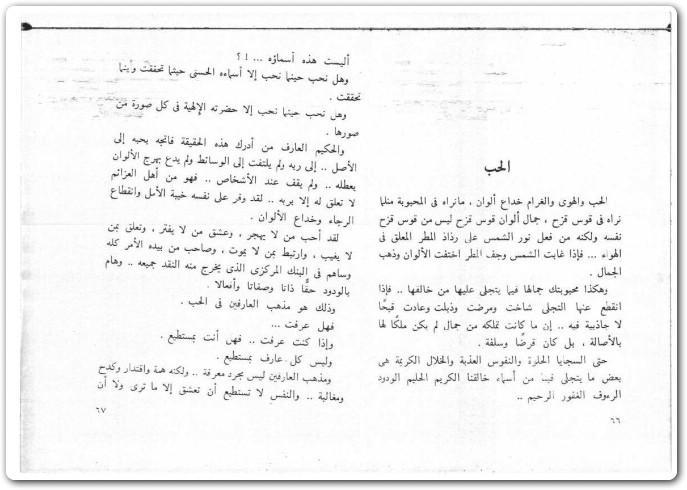 الحب
الحب والهوى والغرام خداع ألوان ، مانراه فى المحبوبة مثلما
نراه فى قوس قزح ، جمال ألوان قوس قزح ليس من قوس قزح
نفسه ولكنه من فعل نور الشمس على رذاذ المطر المعلق فى
الهواء ... فإذا غابت الشمس وجف المطر اختفت الألوان وذهب
الجمال .
وهكذا محبوبتك جمالها فيما يتجلى عليها من خالقها .. فإذا
انقطع عنها التجلى شاخت ومرضت وذبلت وعادت قبحًا
لا جاذبية فيه .. إن ما كانت تملكه من جمال لم يكن ملكًا لها
بالأصالة ، بل كان قرضًا وسلفة .
حتى السجايا الحلوة والنفوس العذبة والخلال الكريمة هى
بعض ما يتجلى فينا من أسماء خالقنا الكريم الحليم الودود
الرءوف الغفور الرحيم ..
٦٦
أليست هذه أسماؤه ... ! ؟
وهل نحب حينما نحب إلا أسماءه الحسنى حيثما تحققت وأينما
تحققت .
وهل نحب حينما نحب إلا حضرته الإلهية فى كل صورة من
صورها .
والحكيم العارف من أدرك هذه الحقيقة فاتجه بحبه إلى
الأصل .. إلى ربه ولم يلتفت إلى الوسائط ولم يدع بهرج الألوان
يعطله .. ولم يقف عند الأشخاص .. فهو من أهل العزائم
لا تعلق له إلا بربه .. لقد وفر على نفسه خيبة الأمل وانقطاع
الرجاء وخداع الألوان .
لقد أحب من لا يهجر ، وعشق من لا يفتر ، وتعلق بمن
لا يغيب ، وارتبط بمن لا يموت ، وصاحب من بيده الأمر كله
وساهم فى البنك المركزى الذى يخرج منه النقد جميعه .. وهام
بالودود حقًّا ذاتا وصفاتا وأفعالا .
وذلك هو مذهب العارفين فى الحب .
فهل عرفت ...
وإذا كنت عرفت .. فهل أنت بمستطيع .
وليس كل عارف بمستطيع .
ومذهب العارفين ليس مجرد معرفة .. ولكنه همة واقتدار وكدح
ومغالبة .. والنفس لا تستطيع أن تعشق إلا ما ترى ولا أن
٦٧